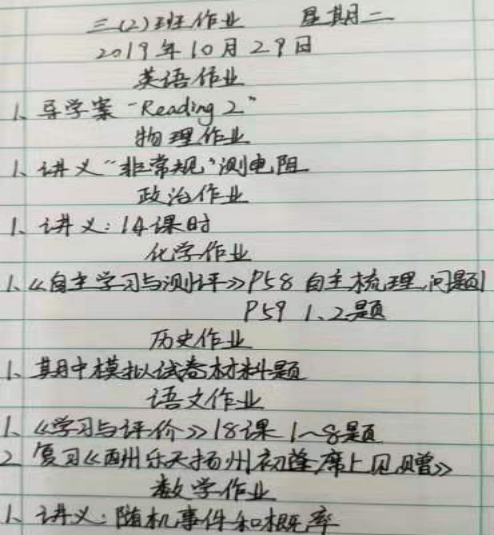 三(2)班作业 星期二
2019年10月29日
英语作业
1、导学案“Reading 2”
物理作业
1、讲义“非常规”测电阻
政治作业
1、讲义:14课时
化学作业
1、《自主学习与测评》P58 自主梳理、问题1
P59 1、2题
历史作业
1、期中模拟试卷材料题
语文作业
1、《学习与评价》18课 1~8题
2 复习《酬乐天扬州初逢席上见赠》
数学作业
1、讲义:随机事件和概率